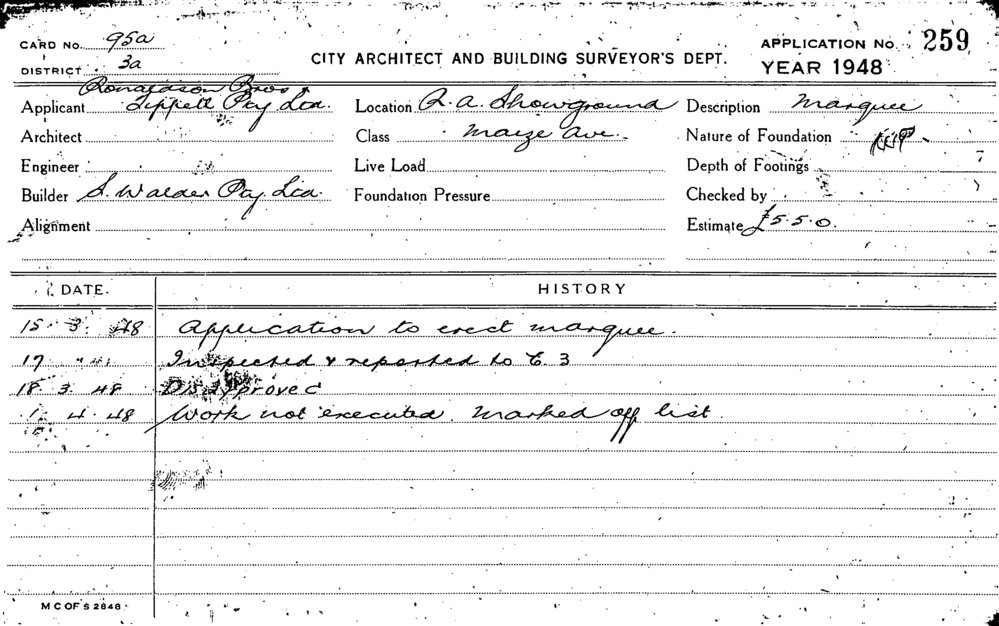 CARD No. 95a
DISTRICT 3a
CITY ARCHITECT AND BUILDING SURVEYOR'S DEPT.
APPLICATION No. 259
YEAR 1948
Ronaldson Bros &
Applicant Tippett Pty Ltd.
Location R.A. Showground
Description Marquee
Architect
Class Maize Ave.
Nature of Foundation
Engineer
Live Load
Depth of Footings
Builder S. Walder Pty Ltd.
Foundation Pressure
Checked by
Alignment
Estimate £5.5.0.
DATE.
HISTORY
15. 3. 48 Application to erect marquee.
17 " " Inspected & reported to E. 3
18. 3. 48 Disapproved
1. 4. 48 Work not executed. Marked off list.
M C OF S 2848